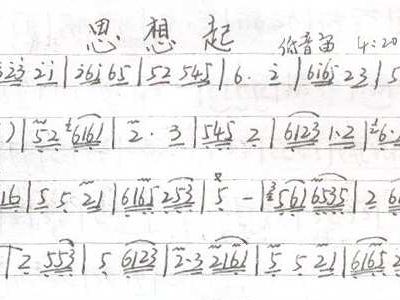 思 想 起
低音笛 4:20
323 21 | 2161 65 | 52 545 | 6. 2 | 6165 23 | 5
) | 52 6161 | 2. 3 | 545 2 | 6123 1.2 | 6.
16 | 5 5 21 | 6165 253 | 5 - | 561 6535 | 2 6
2 553 | 5 6123 | 2.3 2161 | 5 5 21 | 6165 2